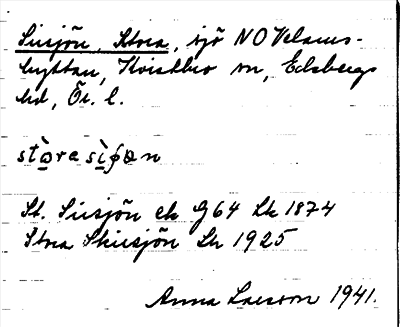 Siisjön, Stora, sjö NO Velams-
hyttan, Kvistbro sn, Edsbergs
hd, Ör. l.
stɷ̀rasìʃɷn
St. Siisjön ek G64 Lk 1874
Stora Skiisjön Lk 1925
Anna Larsson 1941.